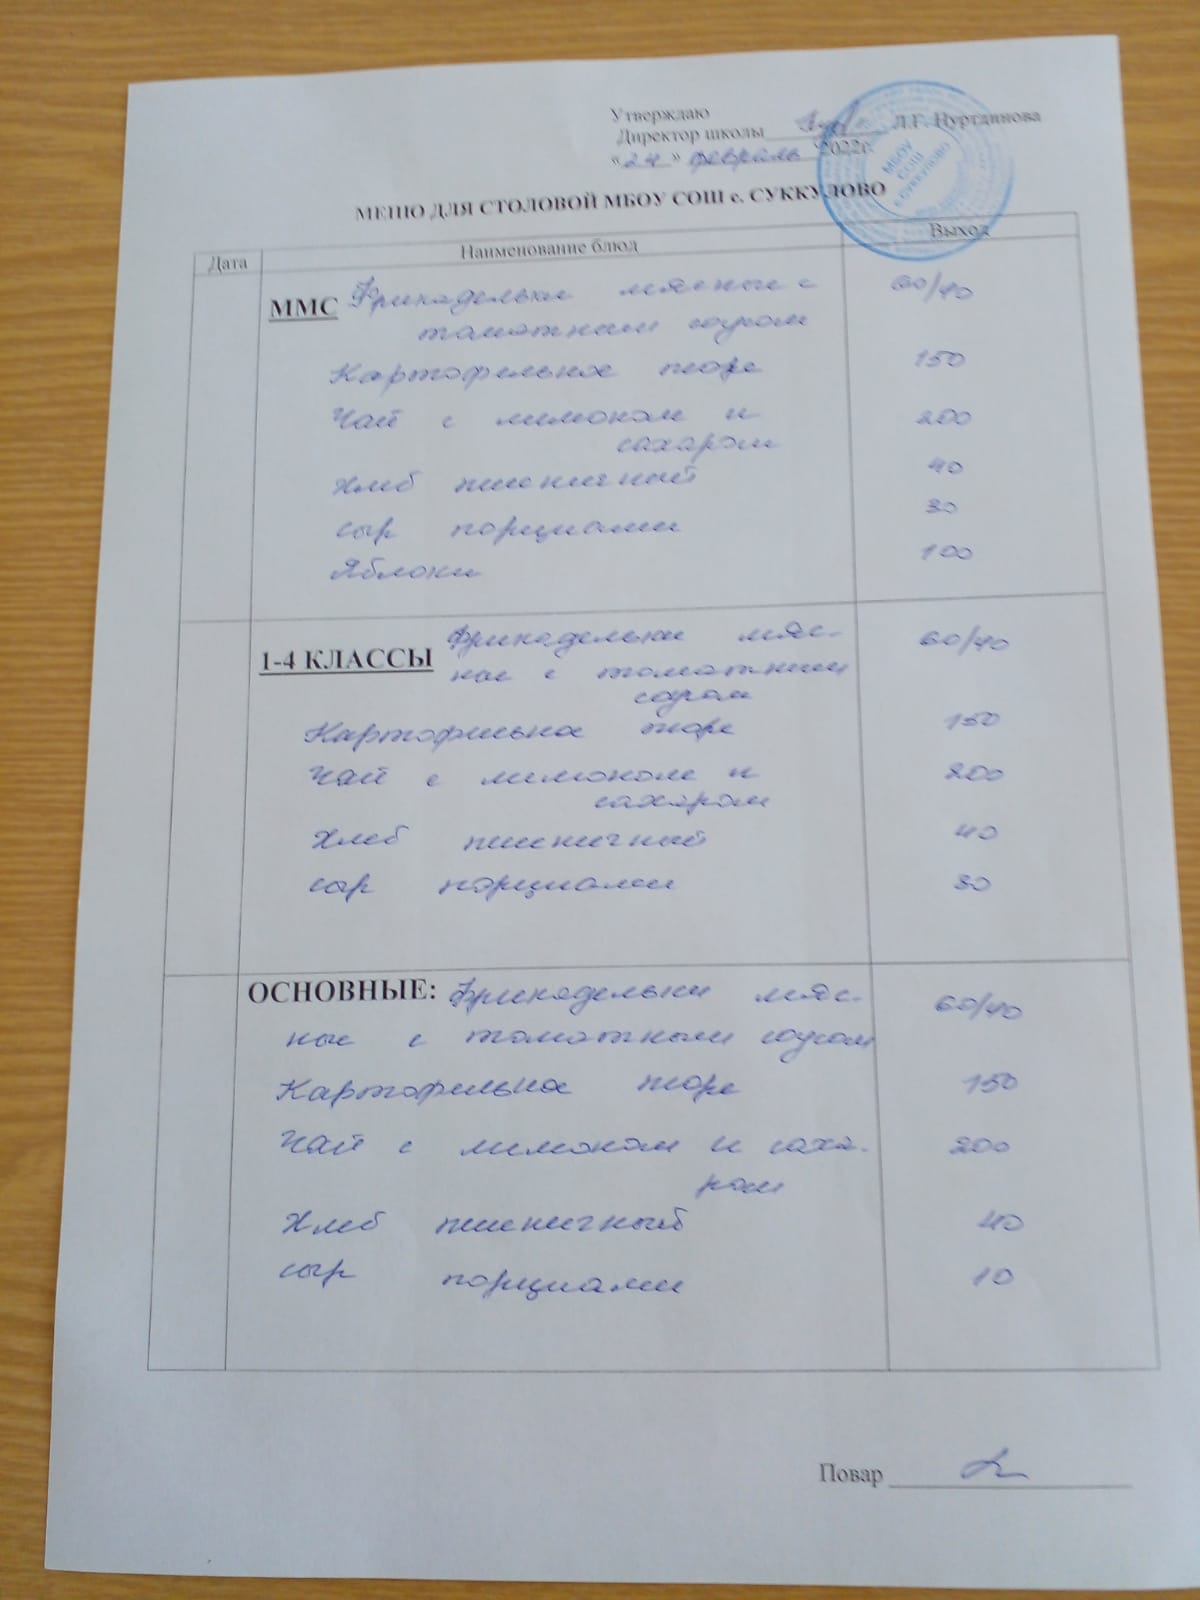 Утверждаю
Директор школы Л.Г. Нуртдинова
«24» февраль 2022г.
МБОУ
СОШ
с.СУККУЛОВО
МЕНЮ ДЛЯ СТОЛОВОЙ МБОУ СОШ с. СУККУЛОВО
Дата Наименование блюд Выход
ММС Фрикадельки мясные с 60/40
томатным соусом
Картофельное пюре 150
Чай с лимоном и 200
сахаром
Хлеб пшеничный 40
сыр порциями 30
Яблоки 100
1-4 КЛАССЫ Фрикадельки мяс- 60/40
ные с томатным
соусом
Картофельное пюре 150
Чай с лимоном и 200
сахаром
Хлеб пшеничный 40
сыр порциями 30
ОСНОВНЫЕ: Фрикадельки мяс- 60/40
ные с томатным соусом
Картофельное пюре 150
Чай с лимоном и саха- 200
ром
Хлеб пшеничный 40
сыр порциями 10
Повар